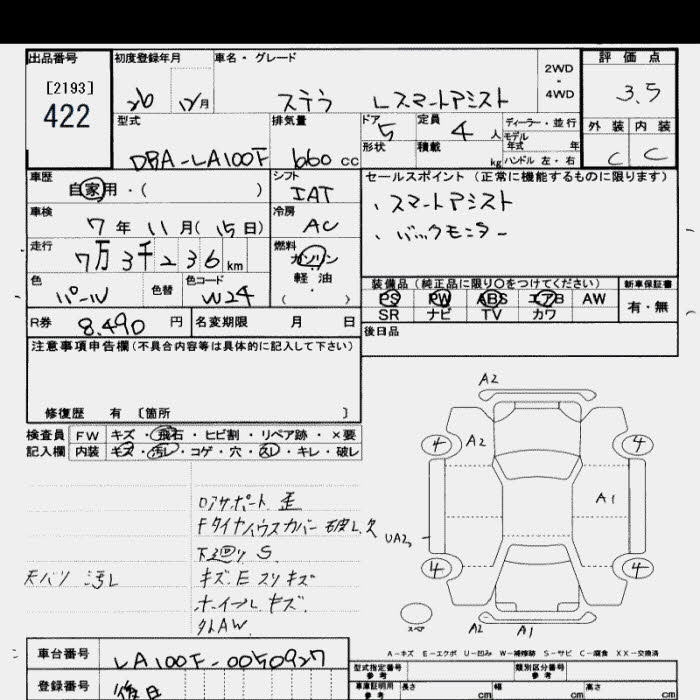 出品番号 初度登録年月 車名・グレード 2WD・4WD 評価点
[2193]
422
26 12/月 ステラ Lスマートアシスト 3.5
型式 排気量 ドア 5 定員 4人 ディーラー・並行 外装 内装
形状 積載 kg モデル年式 年
DBA-LA100F 660cc ハンドル 左・右 C C
車歴 シフト セールスポイント(正常に機能するものに限ります)
自家用・( ) IAT
、スマートアシスト
車検 冷房
7年 11月(15日) AC
、バックモニター
走行 燃料
7万3千236km ガソリン
軽油
( )
色 色替 色コード
パール W24
装備品(純正品に限り○をつけてください) 新車保証書
PS PW ABS エアB AW 有・無
SR ナビ TV カワ
R券 8,490円 名変期限 月 日
後日品
注意事項申告欄(不具合内容等は具体的に記入して下さい)
修復歴 有 〔箇所 〕
検査員記入欄 FW キズ・飛石・ヒビ割・リペア跡・×要
内装 キズ・汚レ・コゲ・穴・スレ・キレ・破レ
ロアサポート 歪
Fタイヤハウスカバー 破レ、欠
下廻り S
天バリ 汚レ
キズ、E スリキズ
ホイール キズ
外AW
A2
4 A2 4
A1
UA2
4 4
スペア
A2 A1
A-キズ E-エクボ U-凹み W-補修跡 S-サビ C-腐食 XX-交換済
車台番号 LA100F-0050927
登録番号 後日
型式指定番号 参考 類別区分番号 参考
車庫証明用 参考 長さ cm 幅 cm 高さ cm